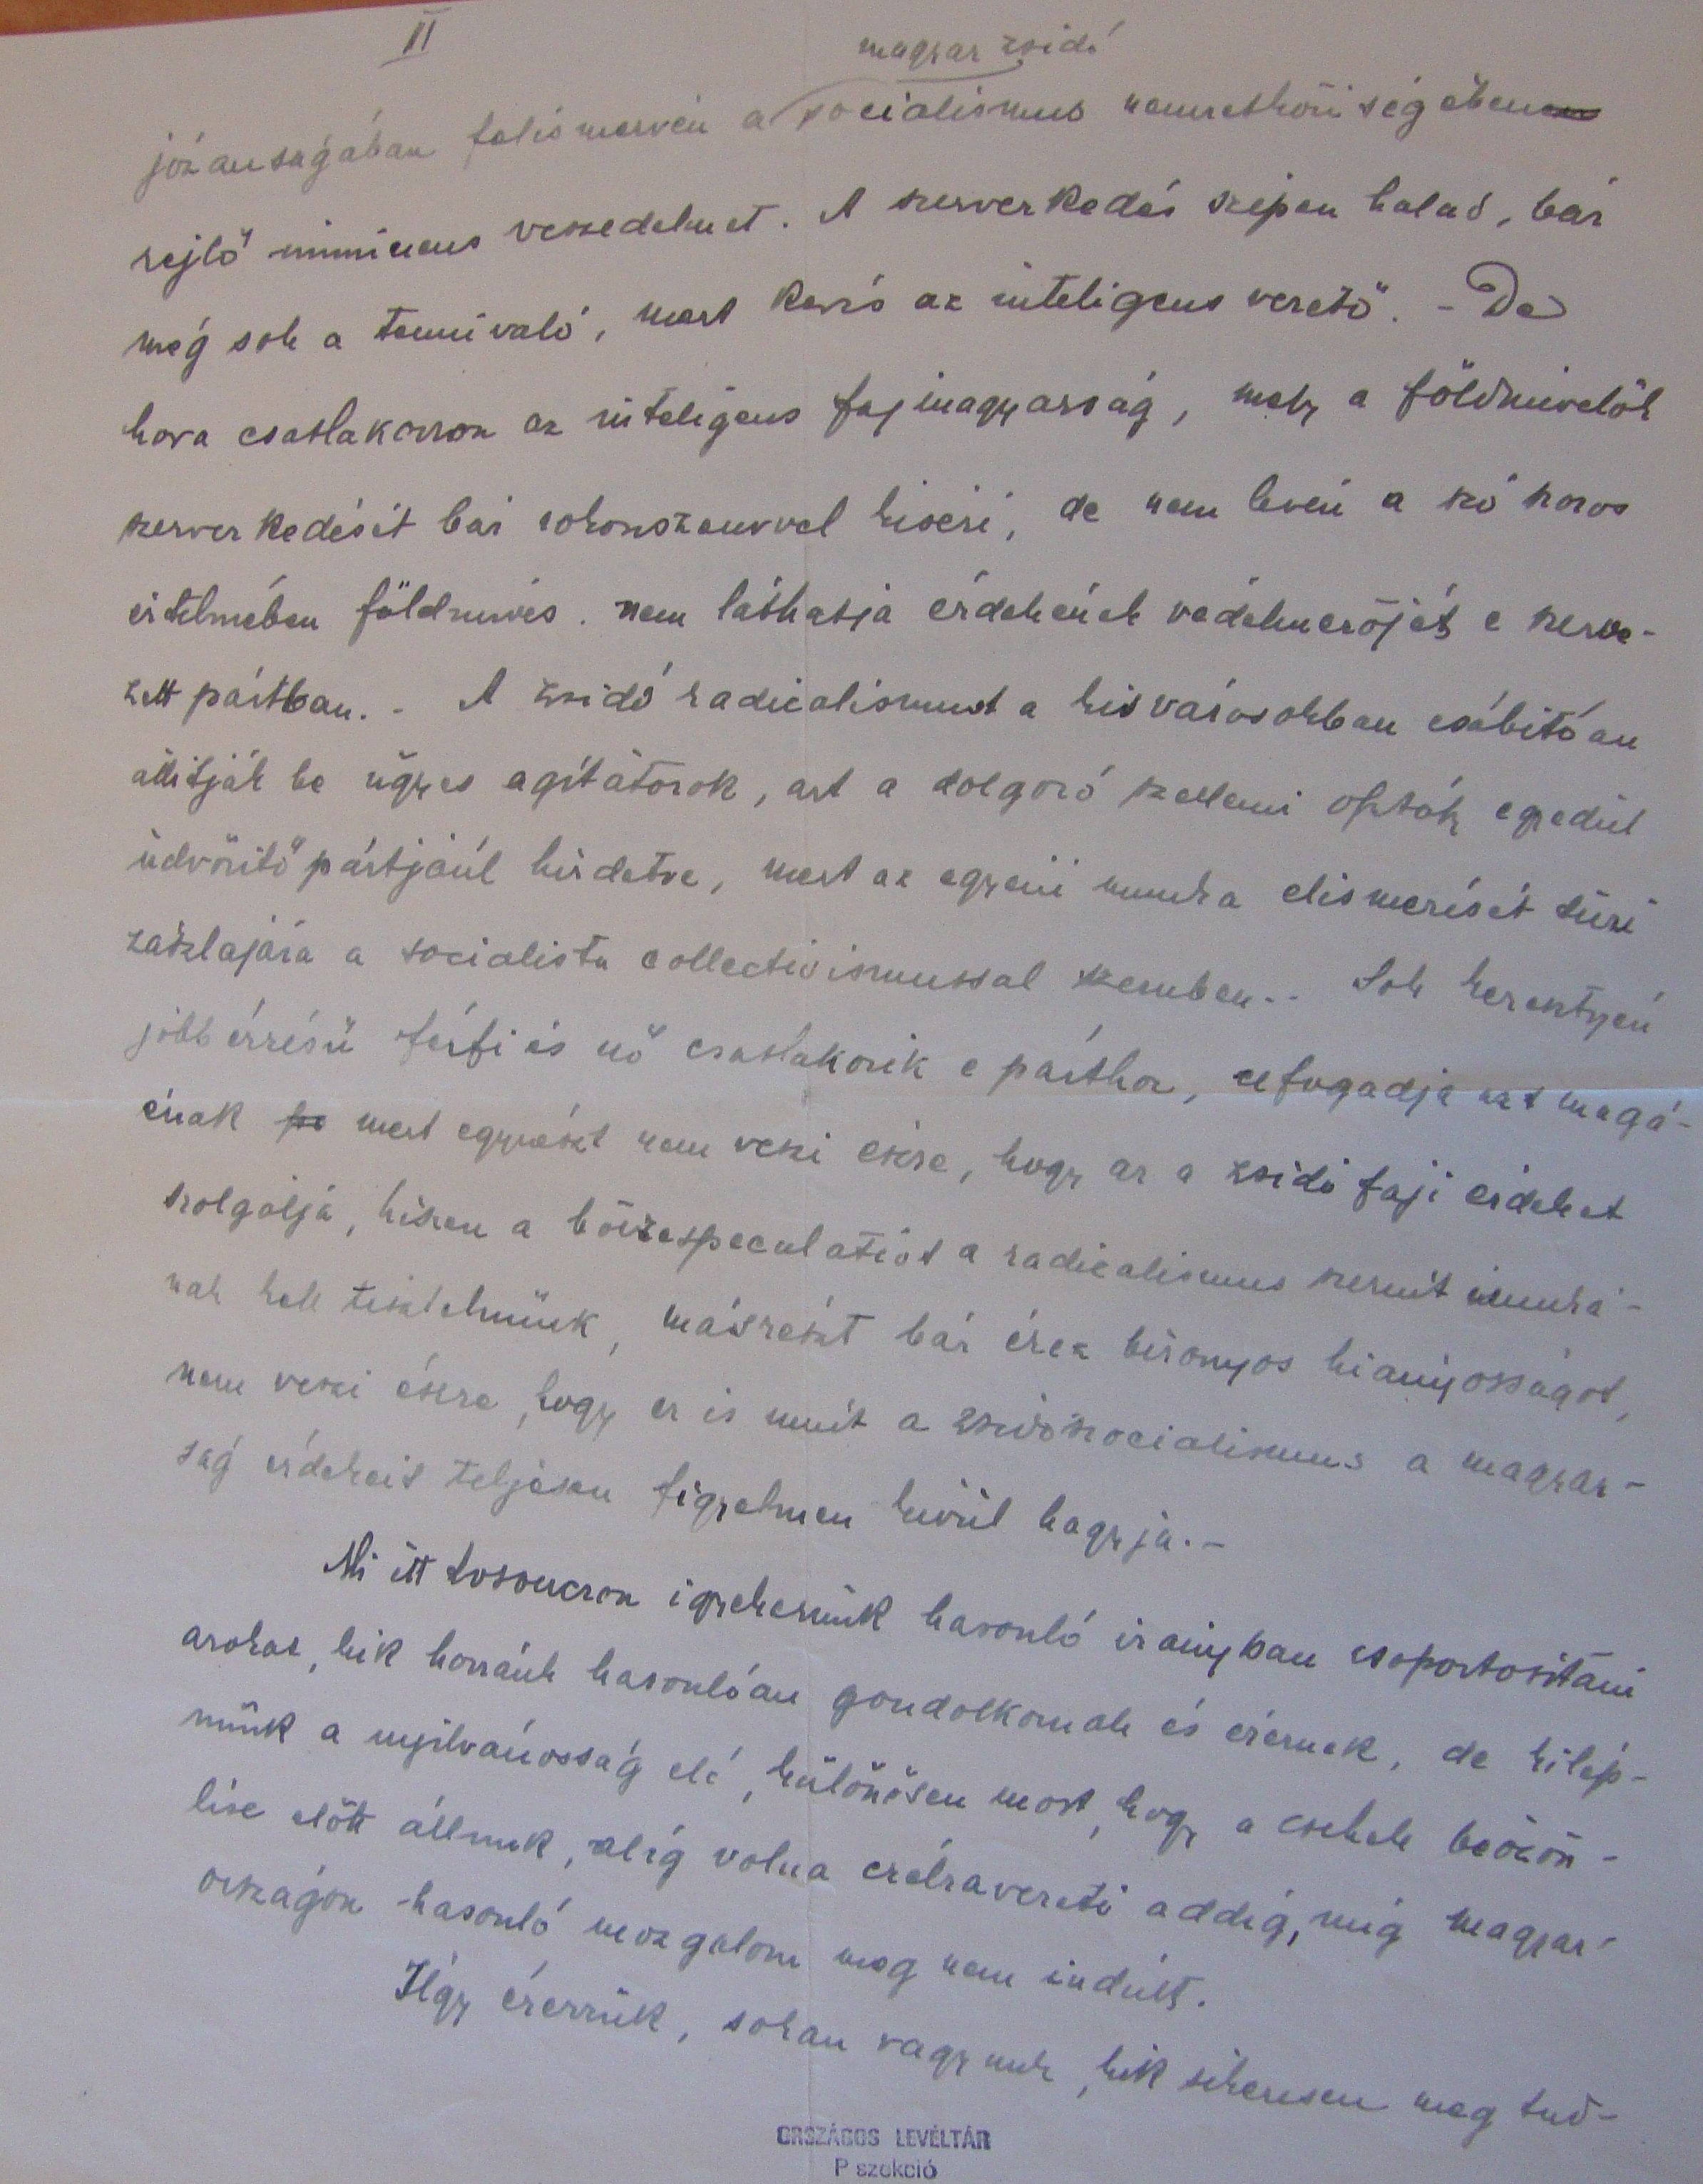 II
magyar zsidó
józanságában felismervén a socialismus nemzetköziségében
rejlő imminens veszedelmet. A szervezkedés szépen halad, bár
még sok a tennivaló, mert kevés az inteligens vezető. - De
hova csatlakozzon az inteligens fajmagyarság, mely a földmivelők
szervezkedését bár rokonszenvvel kiséri, de nem lévén a szó szoros
értelmében földmives. nem láthatja érdekének védelmezőjét e szerve-
zett pártban. - A zsidó radicalismust a kisvárosokban csábitóan
állitják be ügyes agitátorok, azt a dolgozó szellemi osztály egyedül
üdvözitő pártjául hirdetve, mert az egyéni munka elismerését tűzi
zászlajára a socialista collectivismussal szemben.. Sok keresztyén
jobb érzésű férfi és nő csatlakozik e párthoz, elfogadja azt magá-
énak mert egyrészt nem veszi észre, hogy az a zsidó faji érdeket
szolgálja, hiszen a börzespeculatiót a radicalismus szerint munká-
nak kell tisztelnünk, másrészt bár érez bizonyos hiányosságot,
nem veszi észre, hogy ez is mint a zsidósocialismus a magyar-
ság érdekeit teljesen figyelmen kivül hagyja. -
Mi itt Losonczon igyekezünk hasonló irányban csoportositani
azokat, kik hozzánk hasonlóan gondolkoznak és éreznek, de kilép-
nünk a nyilvánosság elé, különösen most, hogy a csehek beözön-
lése előtt állunk, alig volna czélravezető addig, mig Magyar-
országon hasonló mozgalom meg nem indult.
Úgy érezzük, sokan vagyunk, kik sikeresen meg tud-
ORSZÁGOS LEVÉLTÁR
P szekció